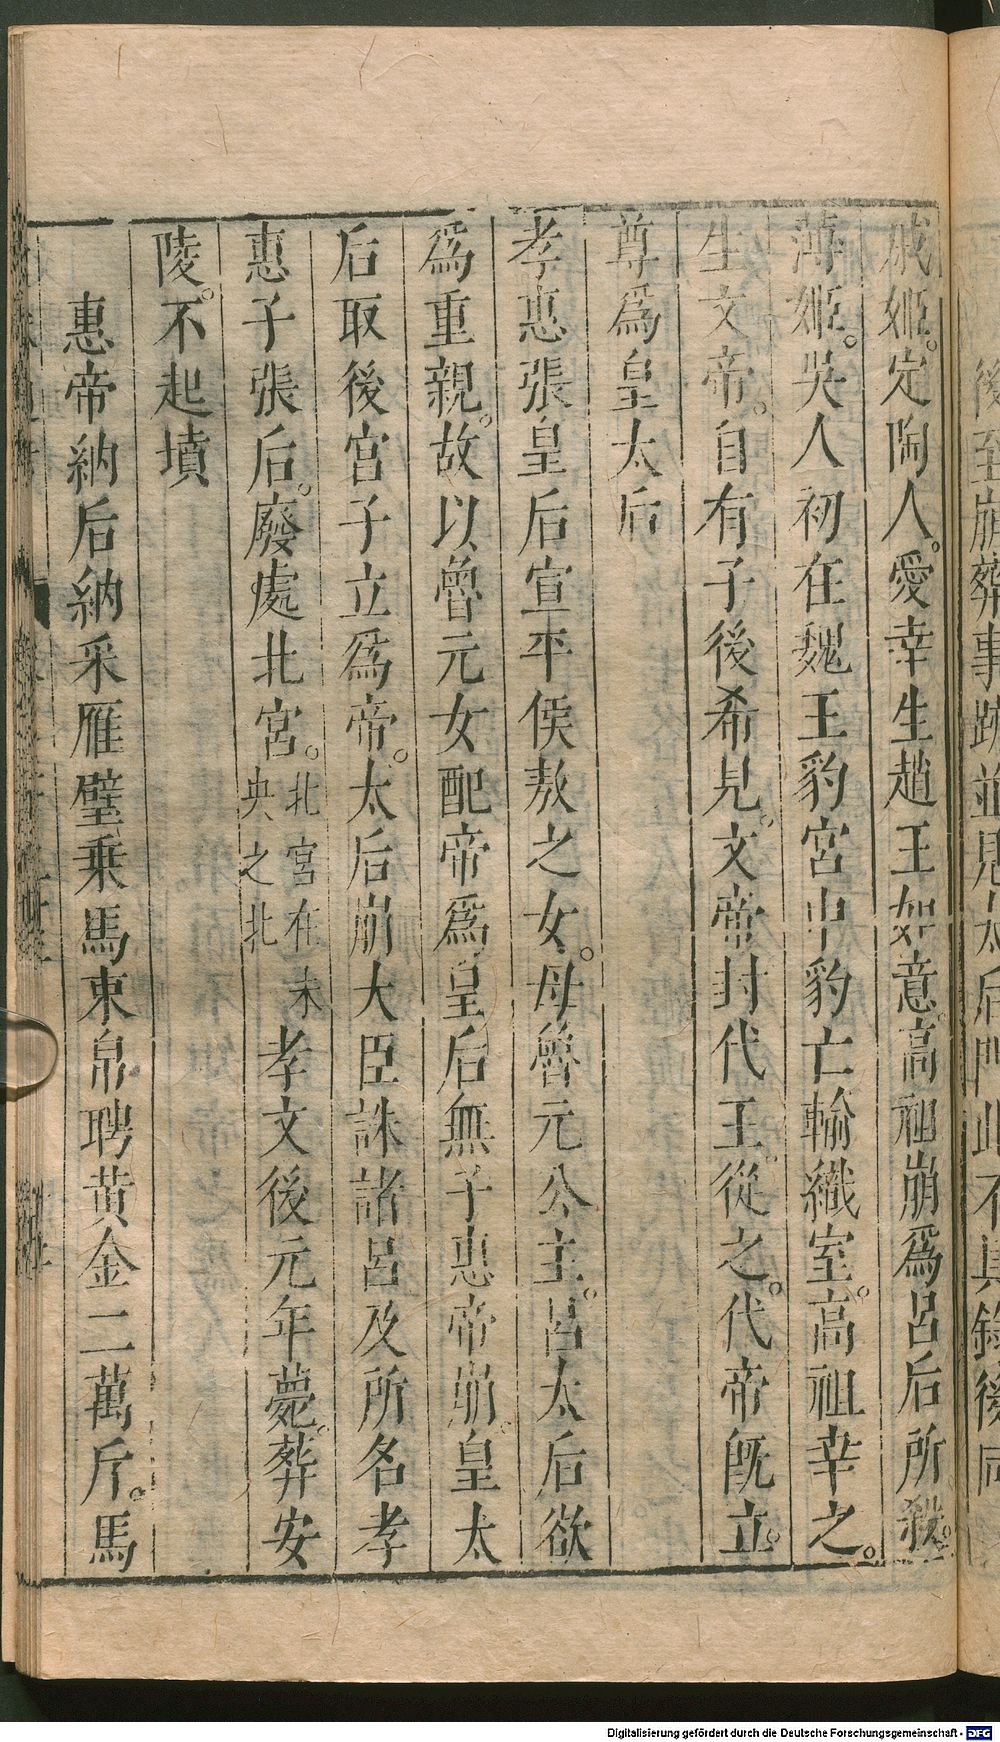 戚姬定陶人愛幸生趙王如意高祖崩爲呂后所殺
薄姬吳人初在魏王豹宮中豹亡輸織室高祖幸之
生文帝自有子後希見文帝封代王從之代帝旣立
尊爲皇太后
孝惠張皇后宣平侯敖之女母魯元公主呂太后欲
爲重親故以魯元女配帝爲皇后無子惠帝崩皇太
后取後宮子立爲帝太后崩大臣誅諸呂及所名孝
惠子張后廢處北宮北宮在未央之北孝文後元年薨葬安
陵不起墳
惠帝納后納采雁璧乗馬束帛聘黃金二萬斤馬
Digitalisierung gefördert durch die Deutsche Forschungsgemeinschaft - DFG